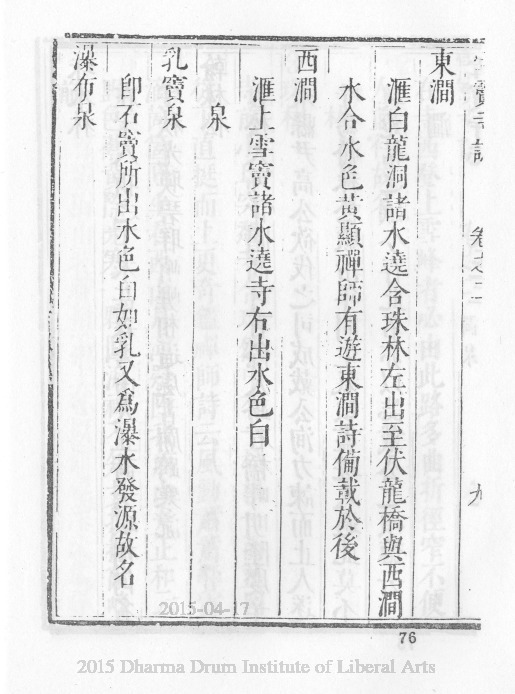 東澗
滙白龍洞諸水遶含珠林左出至伏龍橋與西澗
水合水色黃顯禪師有遊東澗詩備載於後
西澗
滙上雪竇諸水遶寺右出水色白
泉
乳竇泉
卽石竇所出水色白如乳又爲瀑水發源故名
瀑布泉
卷之二
九
2015-04-17
76
2015 Dharma Drum Institute of Liberal Arts